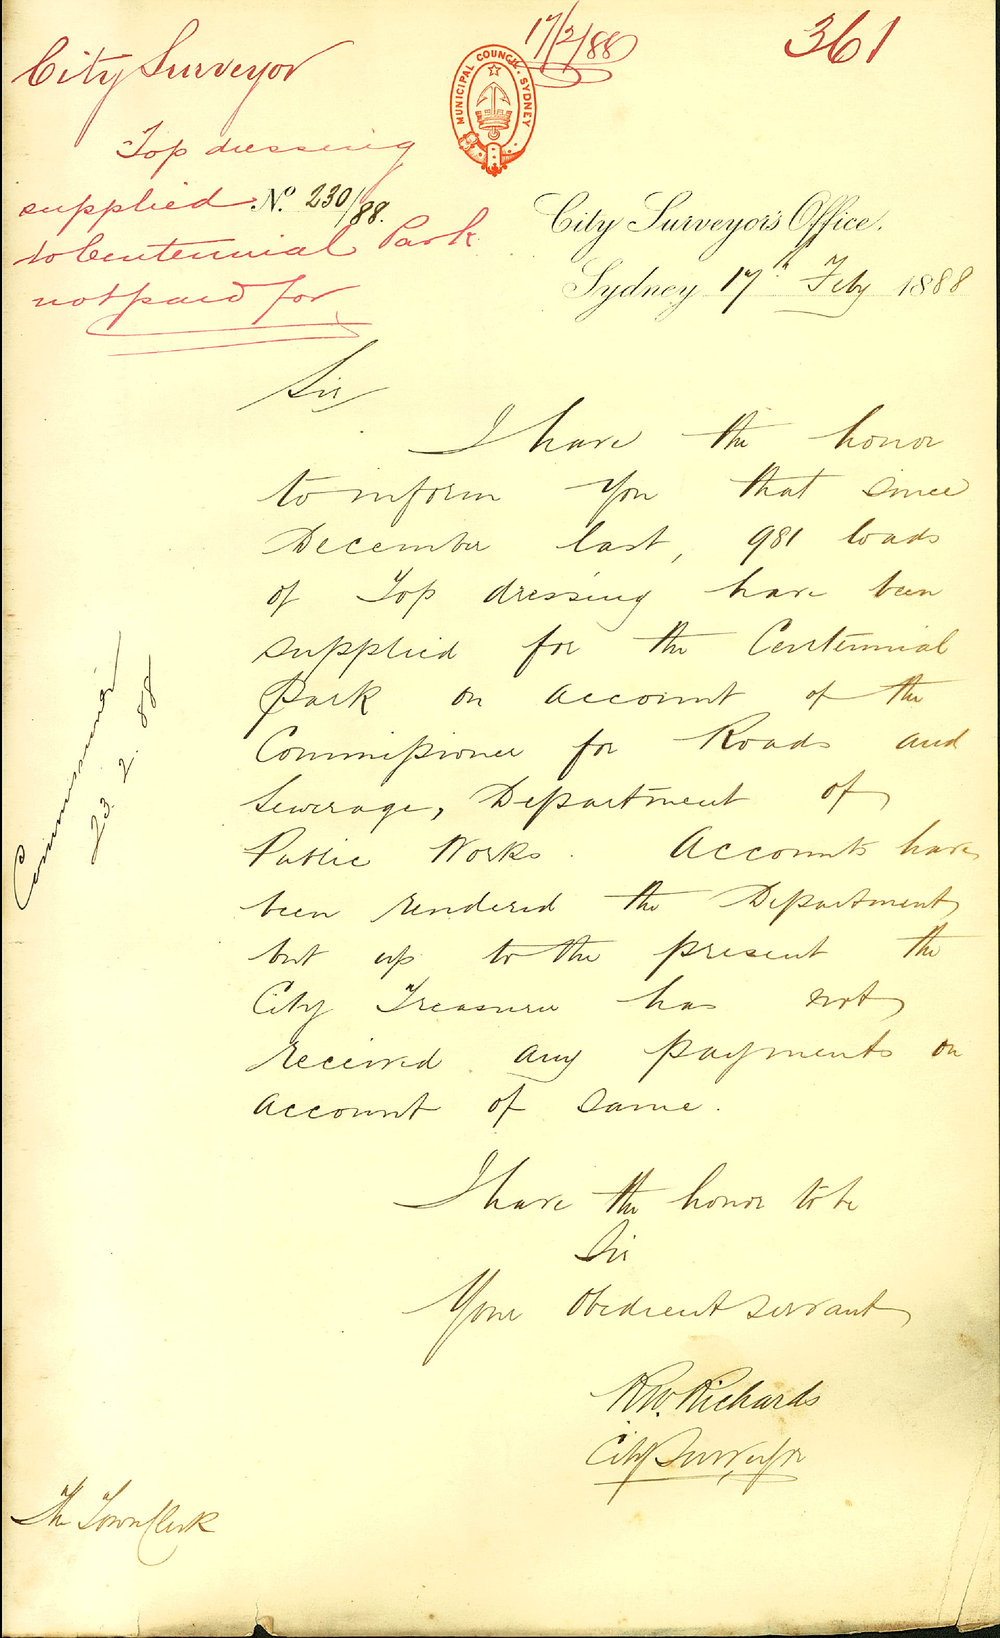 17/2/88
361
City Surveyor
MUNICIPAL COUNCIL. SYDNEY
Top dressing
supplied
to Centennial Park
not paid for
No. 230/88.
City Surveyor's Office.
Sydney 17th Feby 1888
Sir
I have the honor
to inform you that since
December last, 981 loads
of Top dressing have been
supplied for the Centennial
Park on account of the
Commissioner for Roads and
Sewerage, Department of
Public Works. Accounts have
been rendered the Department
but up to the present the
City Treasurer has not
received any payments on
account of same.
I have the honor to be
Sir
Your Obedient servant
R.W. Richards
City Surveyor
The Town Clerk
Commissioner
23. 2. 88